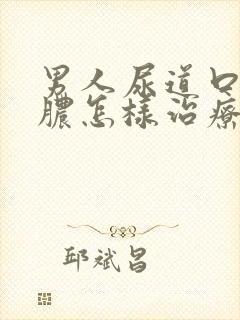 男人尿道口
膿怎樣治療
邱斌昌